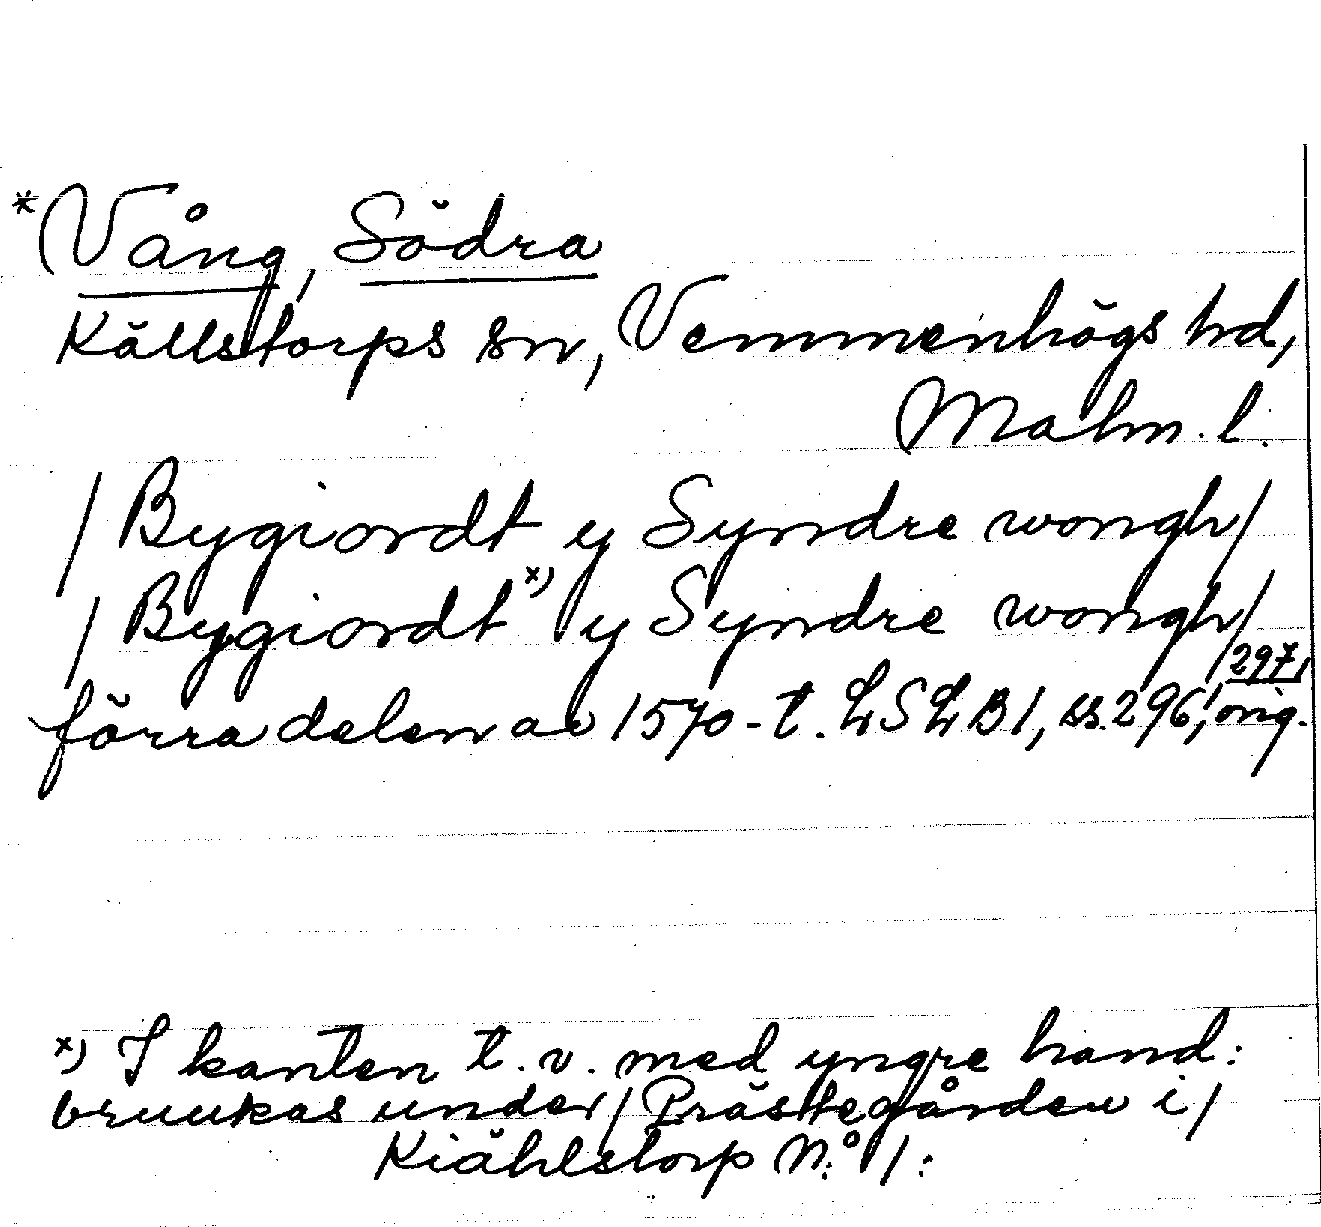 * Vång, Södra
Källstorps sn, Vemmenhögs hd,
Malm. l.
/ Bygiordt y Syndre wongh /
/ Bygiordt x) y Syndre wongh /
förra delen av 1570-t. LSLB 1, ss. 296, 297, orig.
x) I kanten t.v. med yngre hand:
bruukas under / Prästegården i /
Kiählstorp N:o 1: